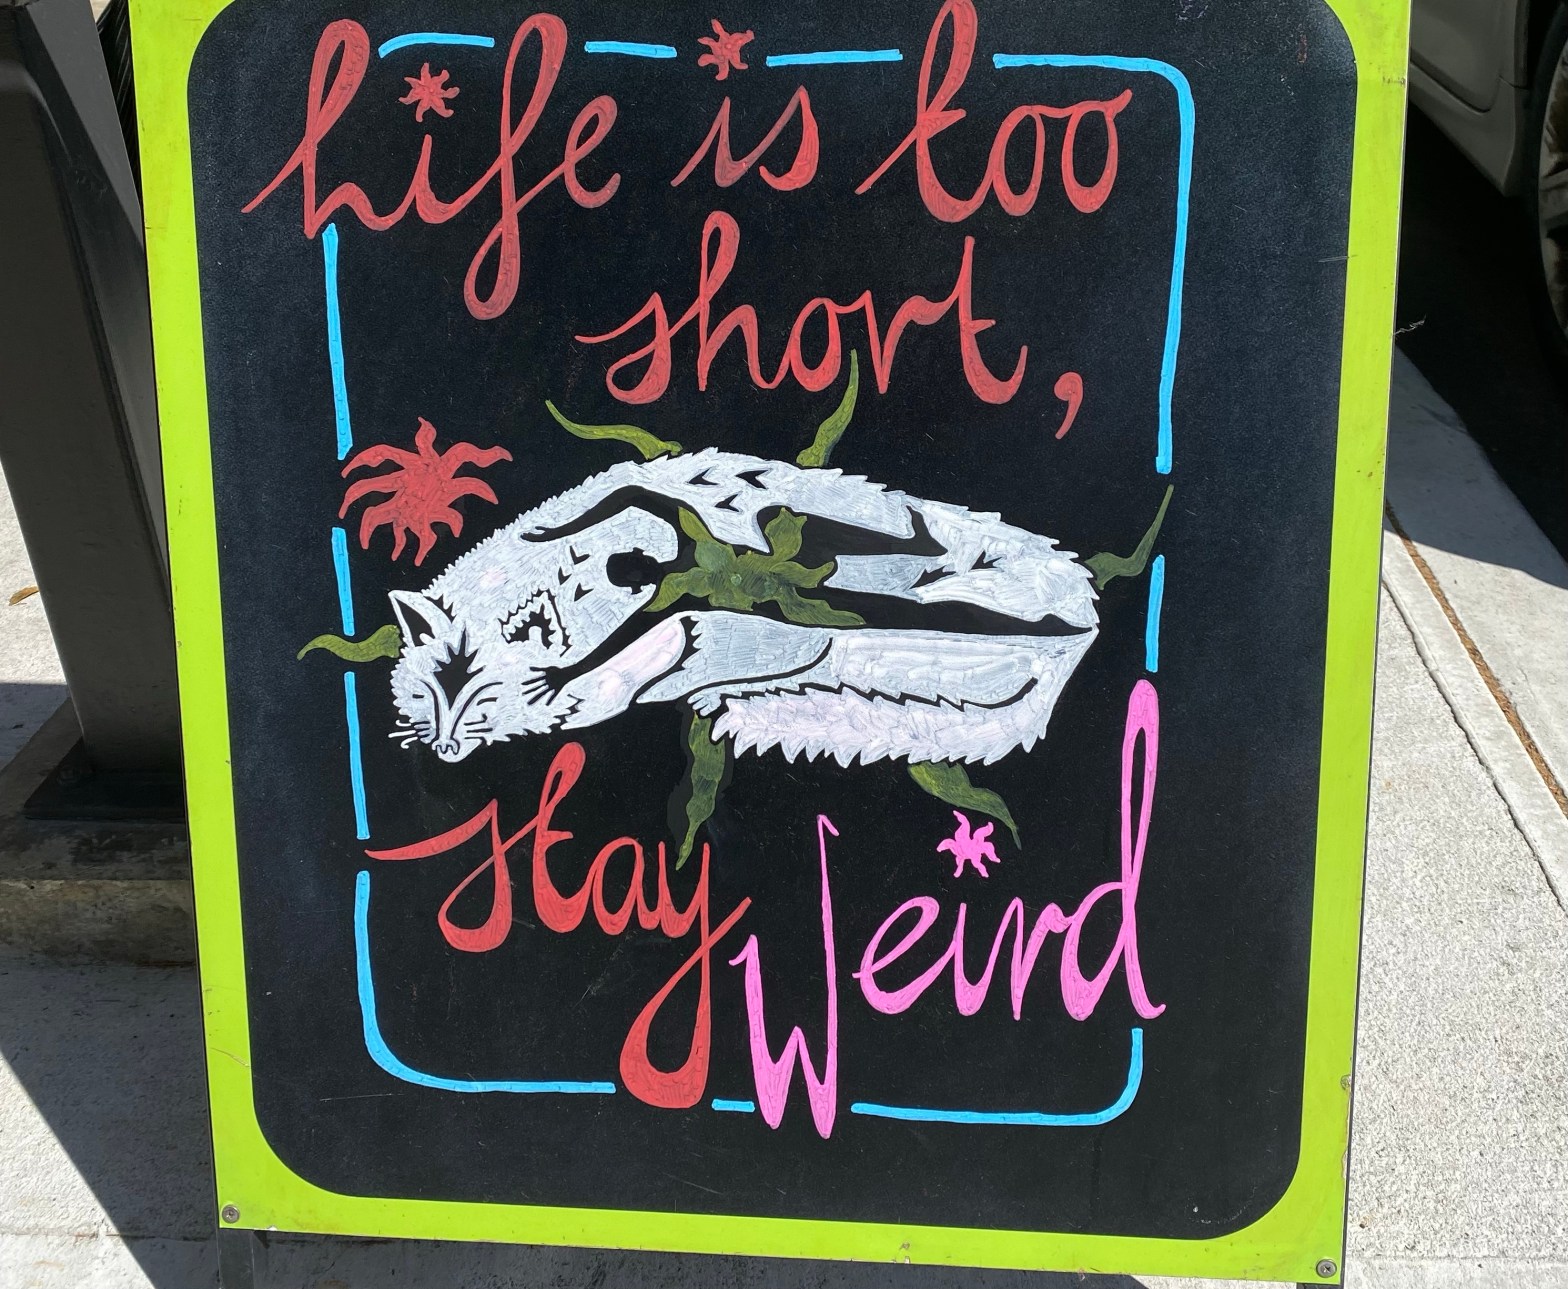 life is too
short,
stay Weird